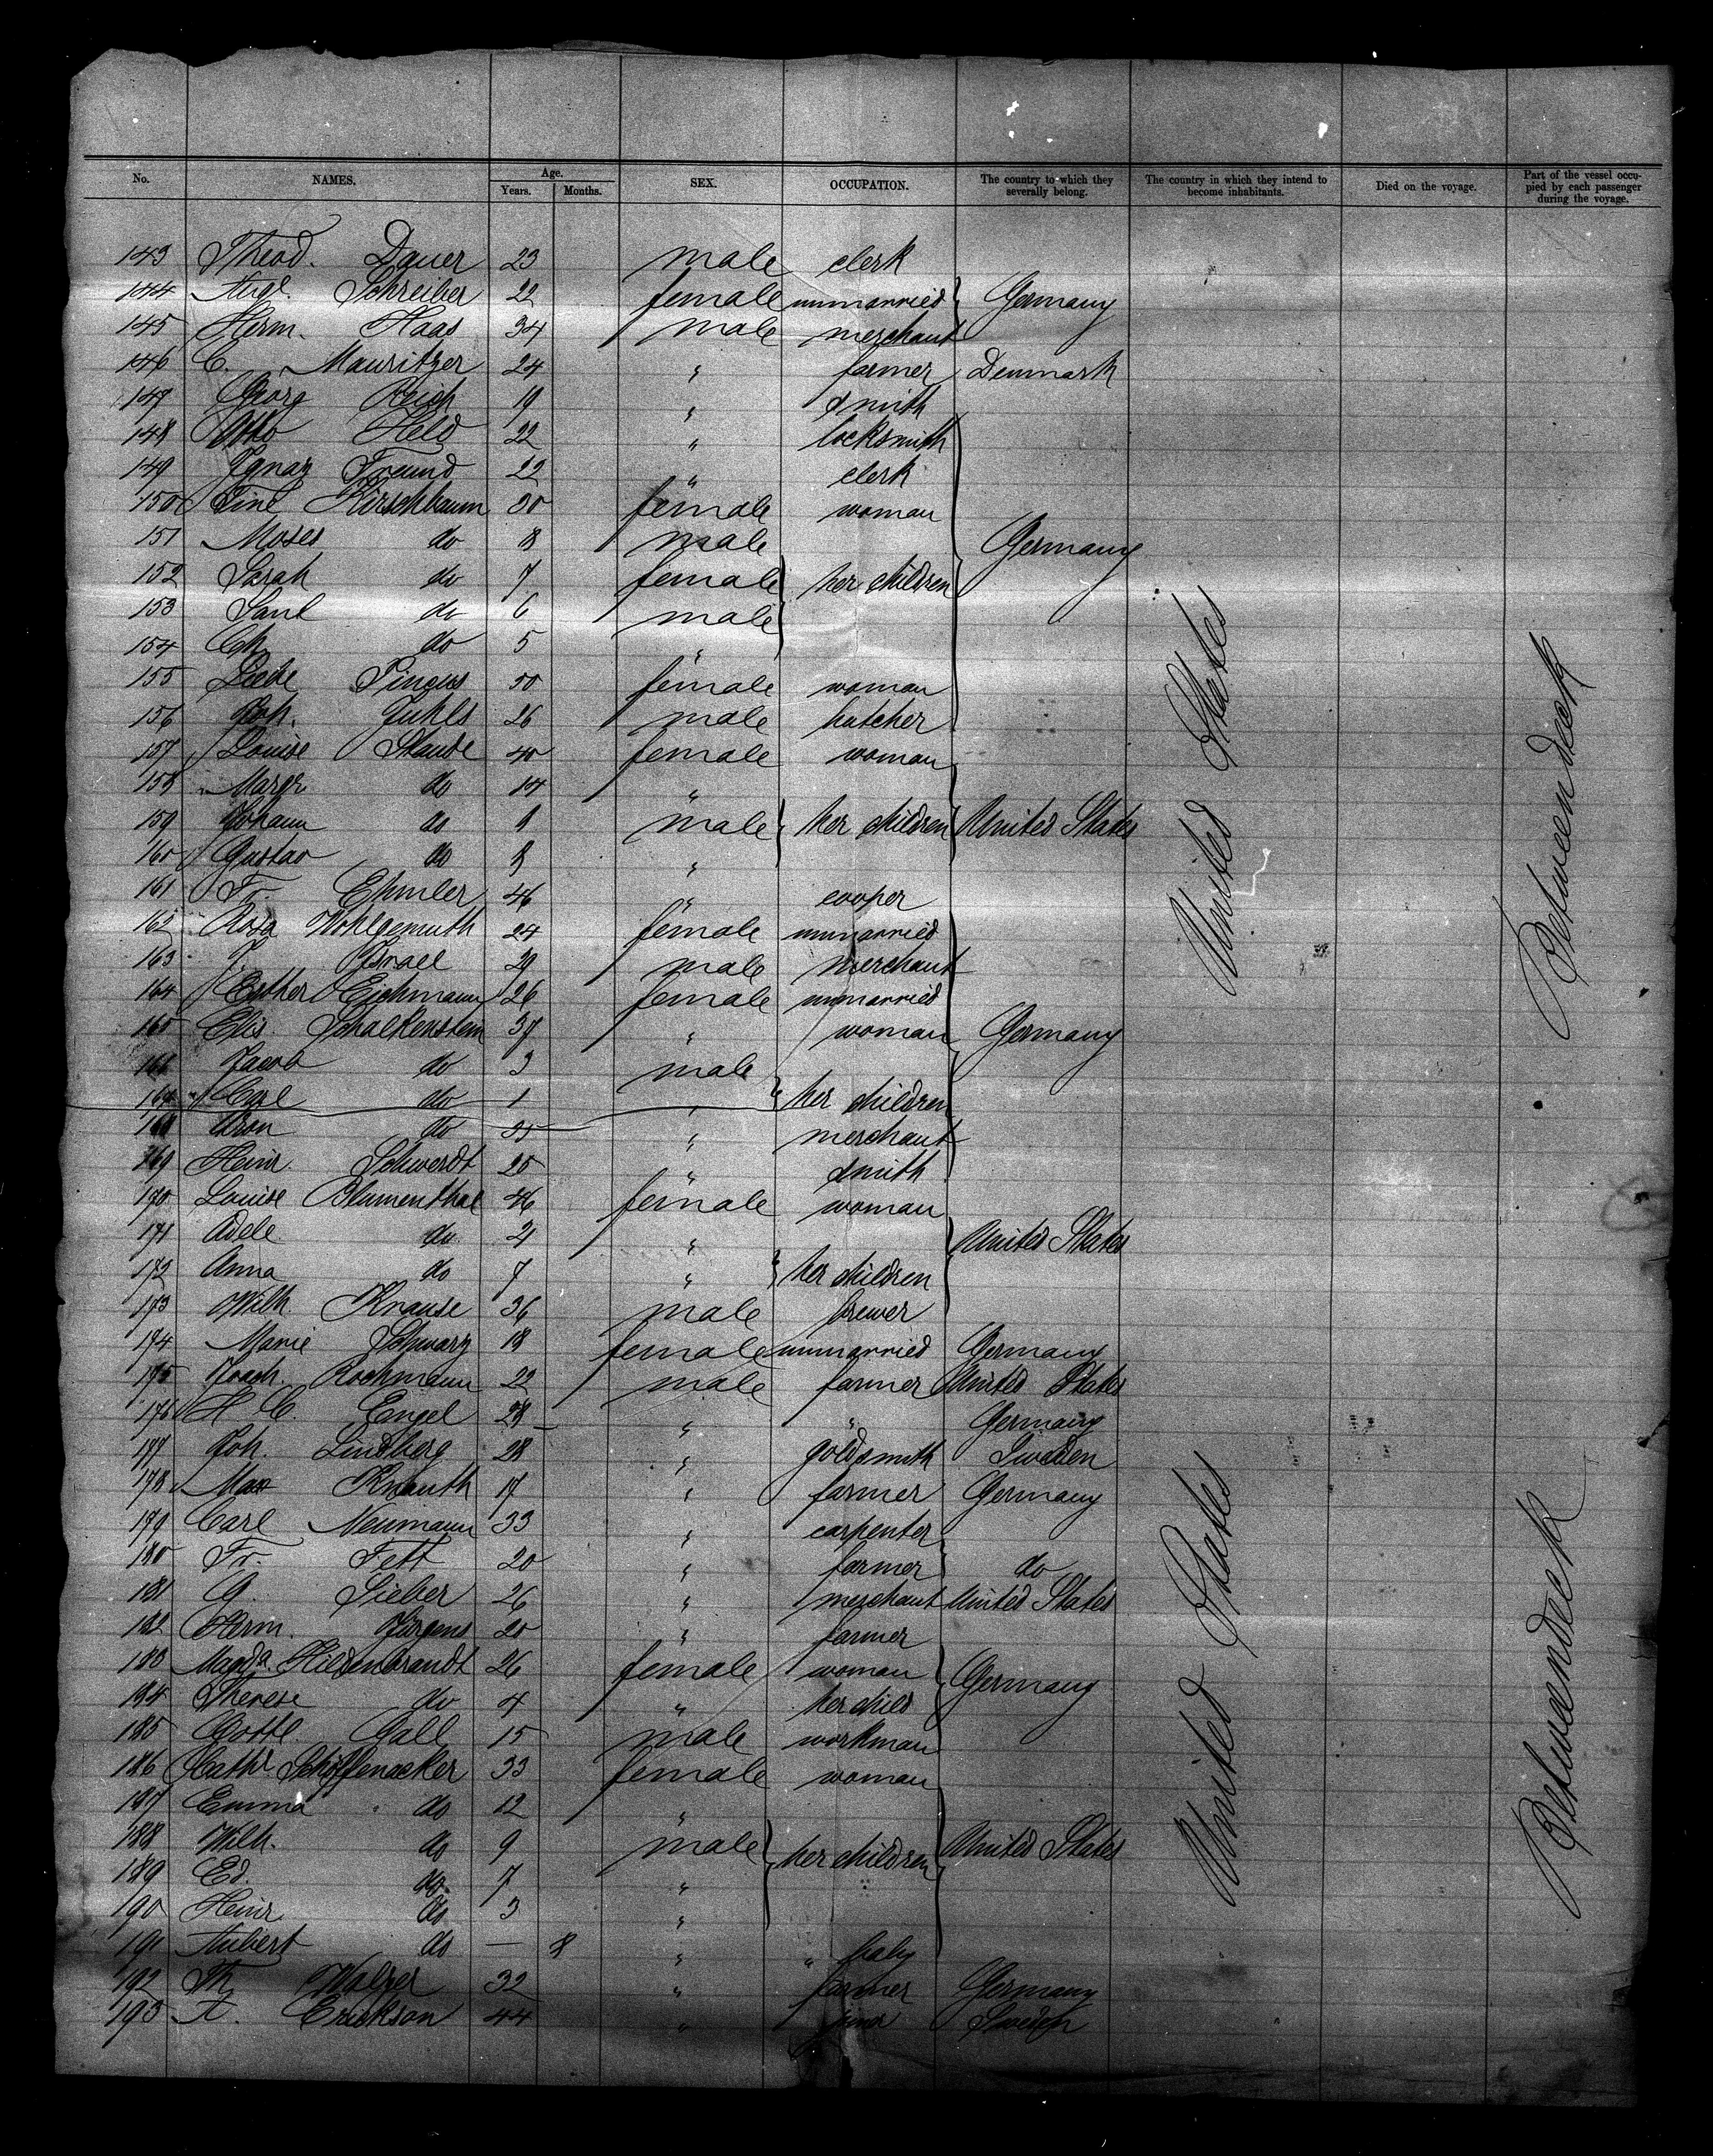 No. NAMES. Age. Years. Months. SEX. OCCUPATION. The country to which they severally belong. The country in which they intend to become inhabitants. Died on the voyage. Part of the vessel occupied by each passenger during the voyage.
143 Theod. Dauer 23 male clerk
144 Aug. Schreiber 22 female unmarried Germany
145 Herm. Haas 34 male merchant
146 C. Mauritzer 24 " farmer Denmark
147 Georg Reich 19 " smith
148 Otto Held 22 " locksmith
149 Ignaz Freund 22 " clerk
150 Tine Kirschbaum 30 female woman
151 Moses do 8 male Germany
152 Sarah do 7 female her children
153 Saul do 6 male
154 Ch. do 5 "
155 Pinges 50 female woman
156 Joh. Juhls 26 male butcher
157 Louise Staude 40 female woman
158 Margr. do 14 "
159 Johann do 9 male her children United States
160 Gustav do 8 "
161 Fr. Ehmler 46 " cooper
162 Rosa Wohlgemuth 24 female unmarried
163 J. Israel 29 male merchant
164 Esther Eichmann 26 female unmarried
165 Elis. Schalkenstein 37 " woman Germany
166 Jacob do 3 male
167 Carl do 1 " her children
168 Aron do 25 " merchant
169 Heinr. Schwerdt 25 " smith
170 Louise Blumenthal 46 female woman
171 Adele do 21 " United States
172 Anna do 7 " her children
173 Wilh. Krause 36 male brewer
174 Marie Schwarz 18 female unmarried Germany
175 Joach. Rochmann 22 male farmer United States
176 H. C. Engel 28 " " Germany
177 Joh. Lindberg 28 " goldsmith Sweden
178 Max Knauth 17 " farmer Germany
179 Carl Neumann 33 " carpenter
180 Fr. Fett 20 " farmer do
181 G. Sieber 26 " merchant United States
182 Herm. Jürgens 20 " farmer
183 Magda. Hildenbrandt 26 female woman Germany
184 Therese do 4 " her child
185 Gottl. Gall 15 male workman
186 Cath. Schöffenacker 33 female woman
187 Emma do 12 "
188 Wilh. do 9 male her children United States
189 Ed. do 7 "
190 Heinr. do 3 "
191 Hubert do — 8 " baby
192 Th. Walzer 32 " farmer Germany
193 A. Erickson 44 " Sweden
United States
Betweendeck
United States
Betweendeck